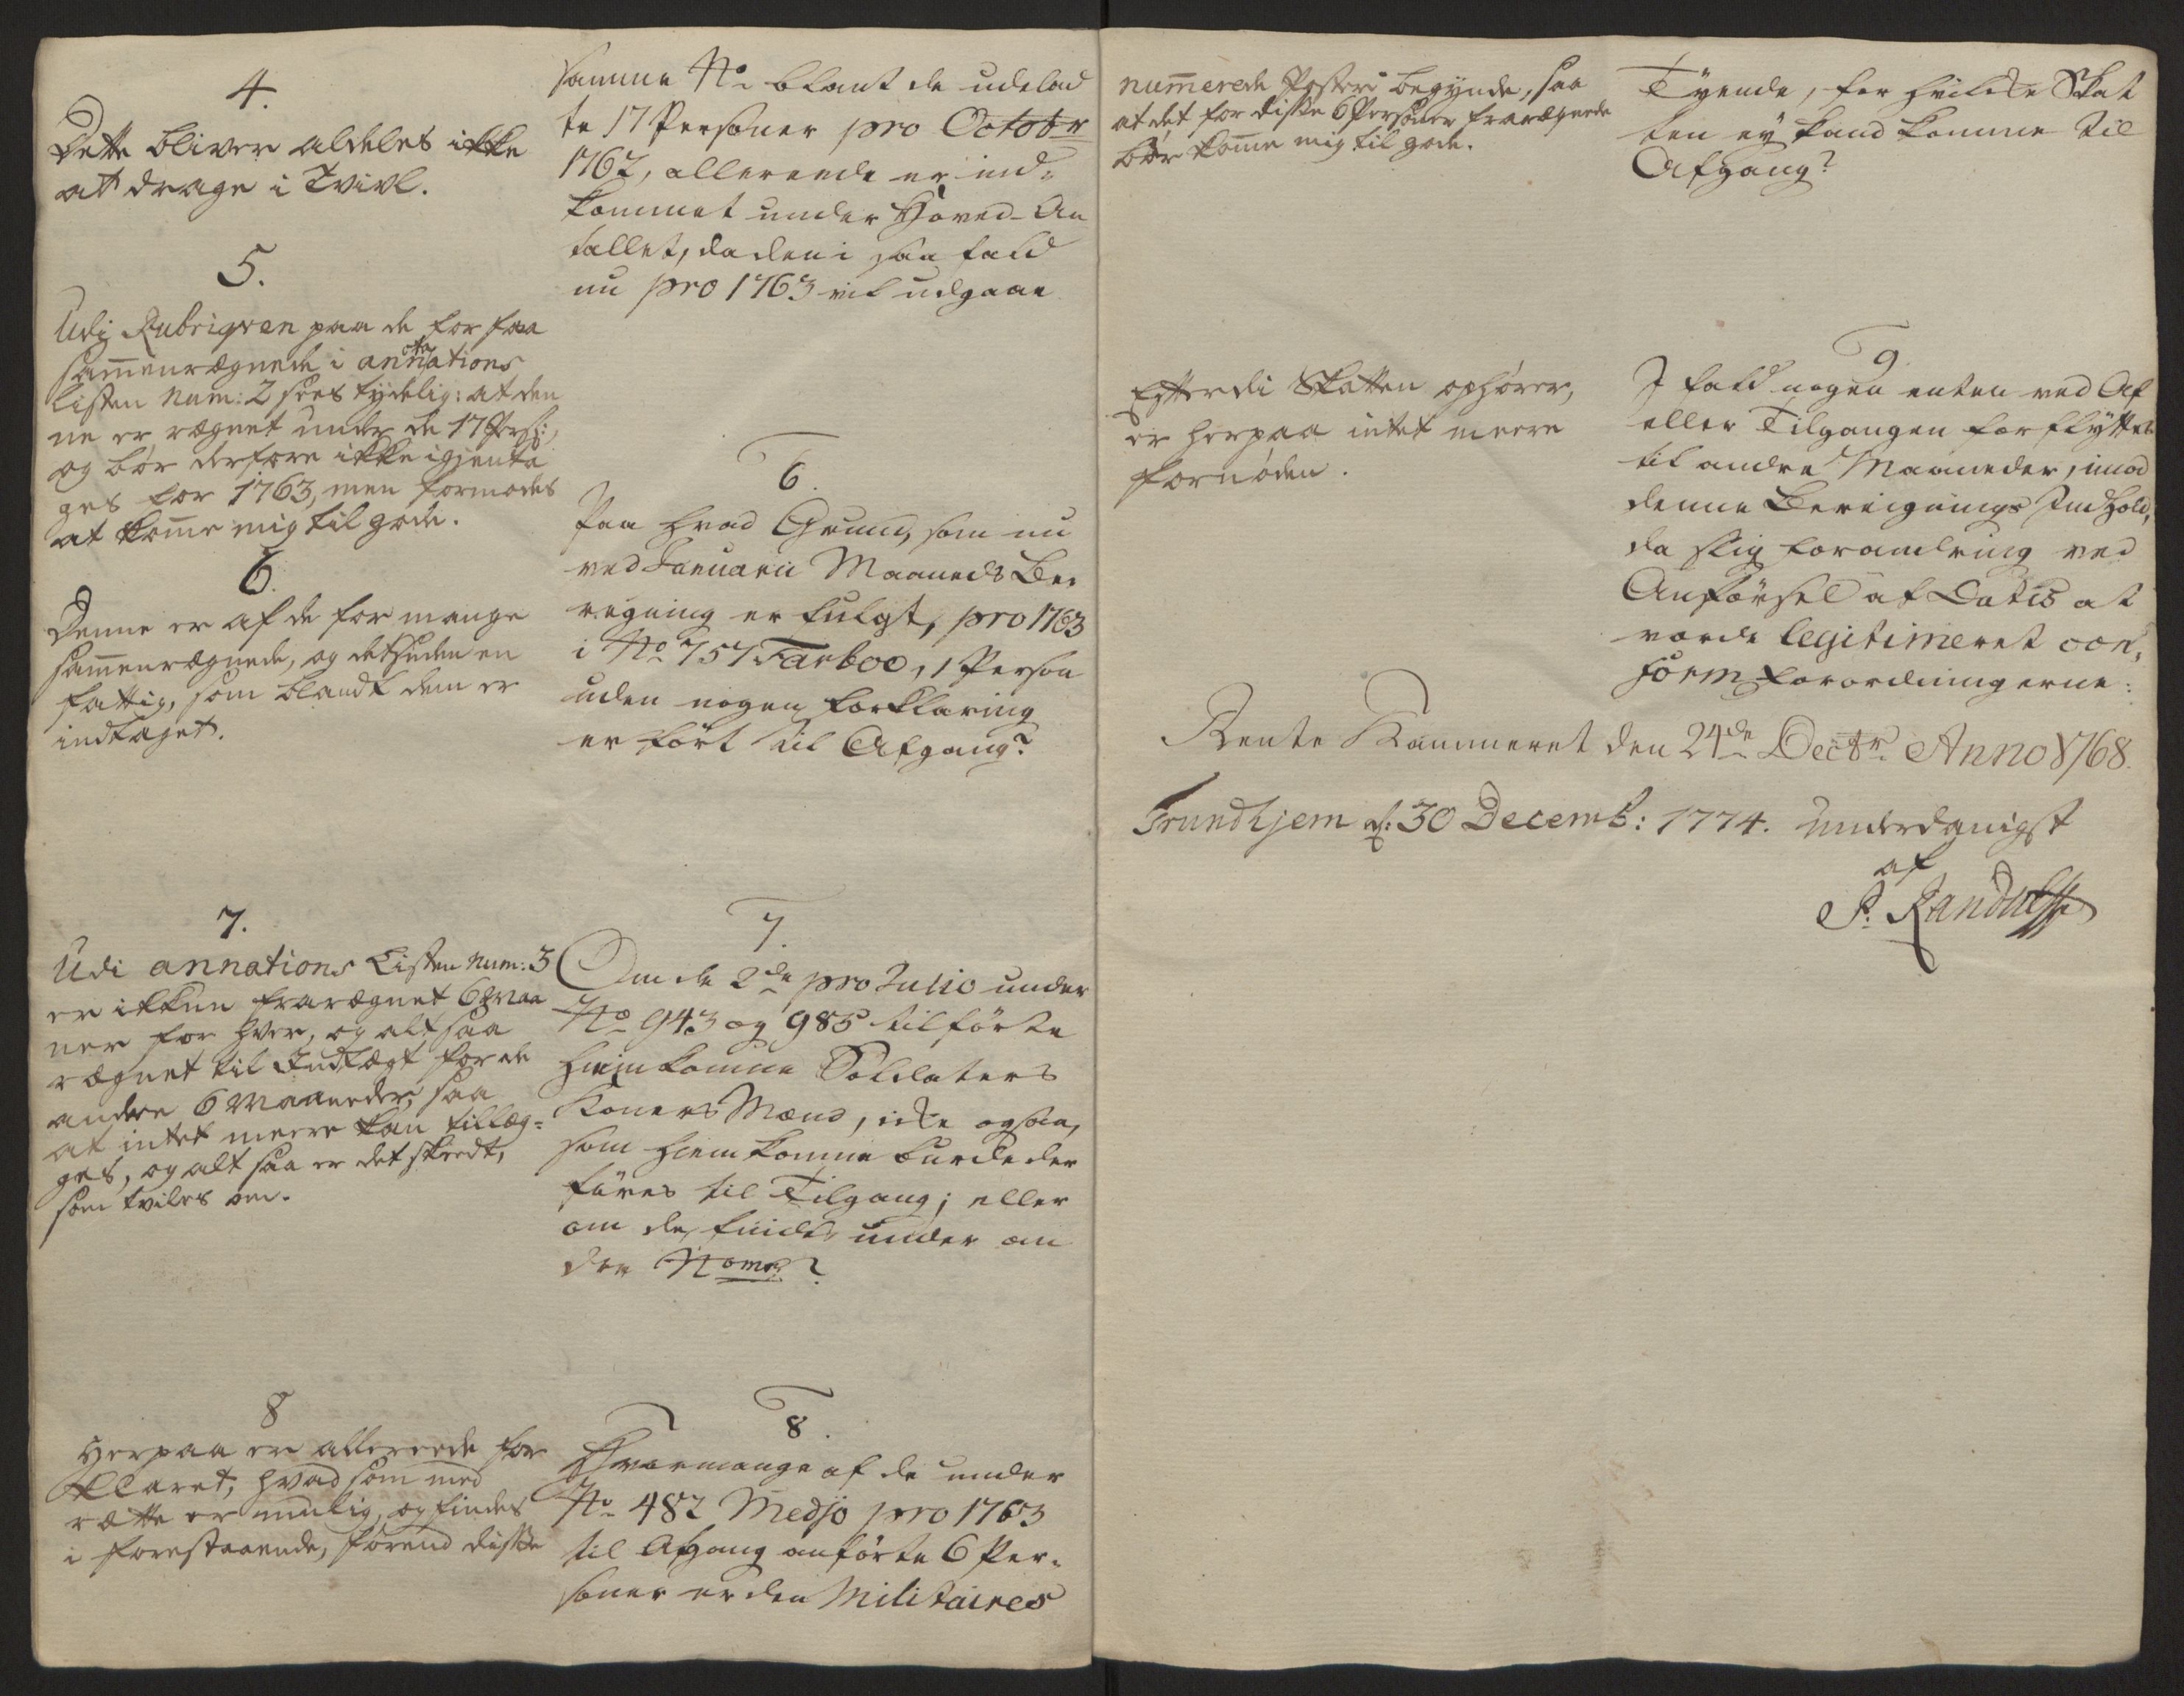 4.
Dette bliver aldeles ikke
at drage i Tvivl.
5.
Udj Rubriqven paa de for faa
sam̅enrægnede i annotations
Listen Num: 2 sees tydelig: at den
ne er rægnet under de 17 Pers:,
og bør derfore ikke igienta
ges for 1763, men formodes
at kom̅e mig til gode.
6.
Denne er af de for mange
sam̅enrægnede, og desuden en
fattig, som blandt dem er
indtaget.
7.
Udi annations Listen Num: 3
er ikkun frarægnet 6 Maa
ner for hver, og alt saa
rægnet til Indtægt for de
andre 6 Maaneder, saa
at intet meere kan tillæg-
ges, og alt saa er det skeedt,
som tviles om.
8
Herpaa er allereede for
klaret, hvad som med
rætte er muelig, og findes
i forestaaende, førend disse
samme No blant de udelad
te 17 Personer pro Octobr
1762, allereede er ind-
kommet under Hoved-An
tallet, da den i saa fald
nu pro 1763 vil udgaae
6.
Paa hvad Grund, som nu
ved Januarii Maaneds Be-
regning er fulgt, pro 1763
i No 757 Farboe, 1 Person
uden nogen forklaring
er ført til Afgang?
7.
Om de 2de pro Julio under
No 943 og 985 tilførte
hiemkomne Soldaters
Koners Mænd, icke ogsaa,
som hiemkomne burde der
føres til Tilgang; eller
om de findes under an
dre Nome?
8.
Hvormange af de under
No 482 Medjo pro 1763
til Afgang anførte 6 Per-
soner er den Militaires
num̅erede Poster begynde, saa
at det for disse 6 Personer frarægnede
bør kom̅e mig til gode.
Efterdi Skatten ophører,
er herpaa intet meere
fornøden.
Tyende, for hvilcke Skat
ten ey kand komme til
Afgang?
9.
I fald nogen enten ved Af
eller Tilgangen forflyttes
til andre Maaneder, imod
denne Beregnings Indhold,
da slig forandring ved
Anførsel af Datis at
vorde legitimeret con-
form forordningerne.
Rente Kammeret den 24de Decbr. Anno 1768.
Trundhjem d: 30 Decemb: 1774. underdanigst
af
P. Randulff